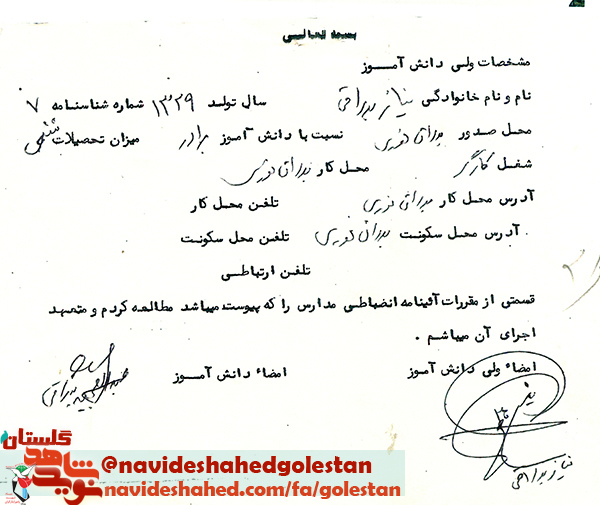 بسمه تعالی
مشخصات ولی دانش آموز
نام و نام خانوادگی نیاز بوراقی سال تولد ۱۳۲۹ شماره شناسنامه ۷
محل صدور نسبت با دانش آموز برادر میزان تحصیلات ششم
شغل کارگر محل کار
آدرس محل کار تلفن محل کار
آدرس محل سکونت تلفن محل سکونت
تلفن ارتباطی
قسمتی از مقررات آئینامه انضباطی مدارس را که پیوست میباشد مطالعه کردم و متعهد
اجرای آن میباشم .
امضاء ولی دانش آموز امضاء دانش آموز
نیاز بوراقی
نوید شاهد گلستان
@navideshahedgolestan
navideshahed.com/fa/golestan